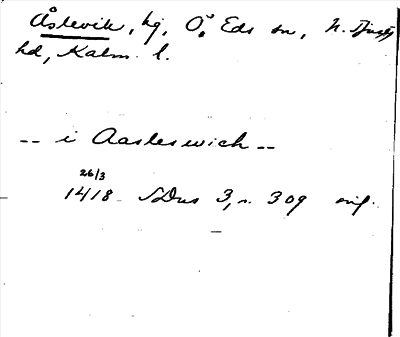 Åslevik, hg, Ö. Eds sn, N. Tjusts
hd, Kalm. l.
-- i Aasleswich --
26/3
1418 SDns 3, n. 309 orig.